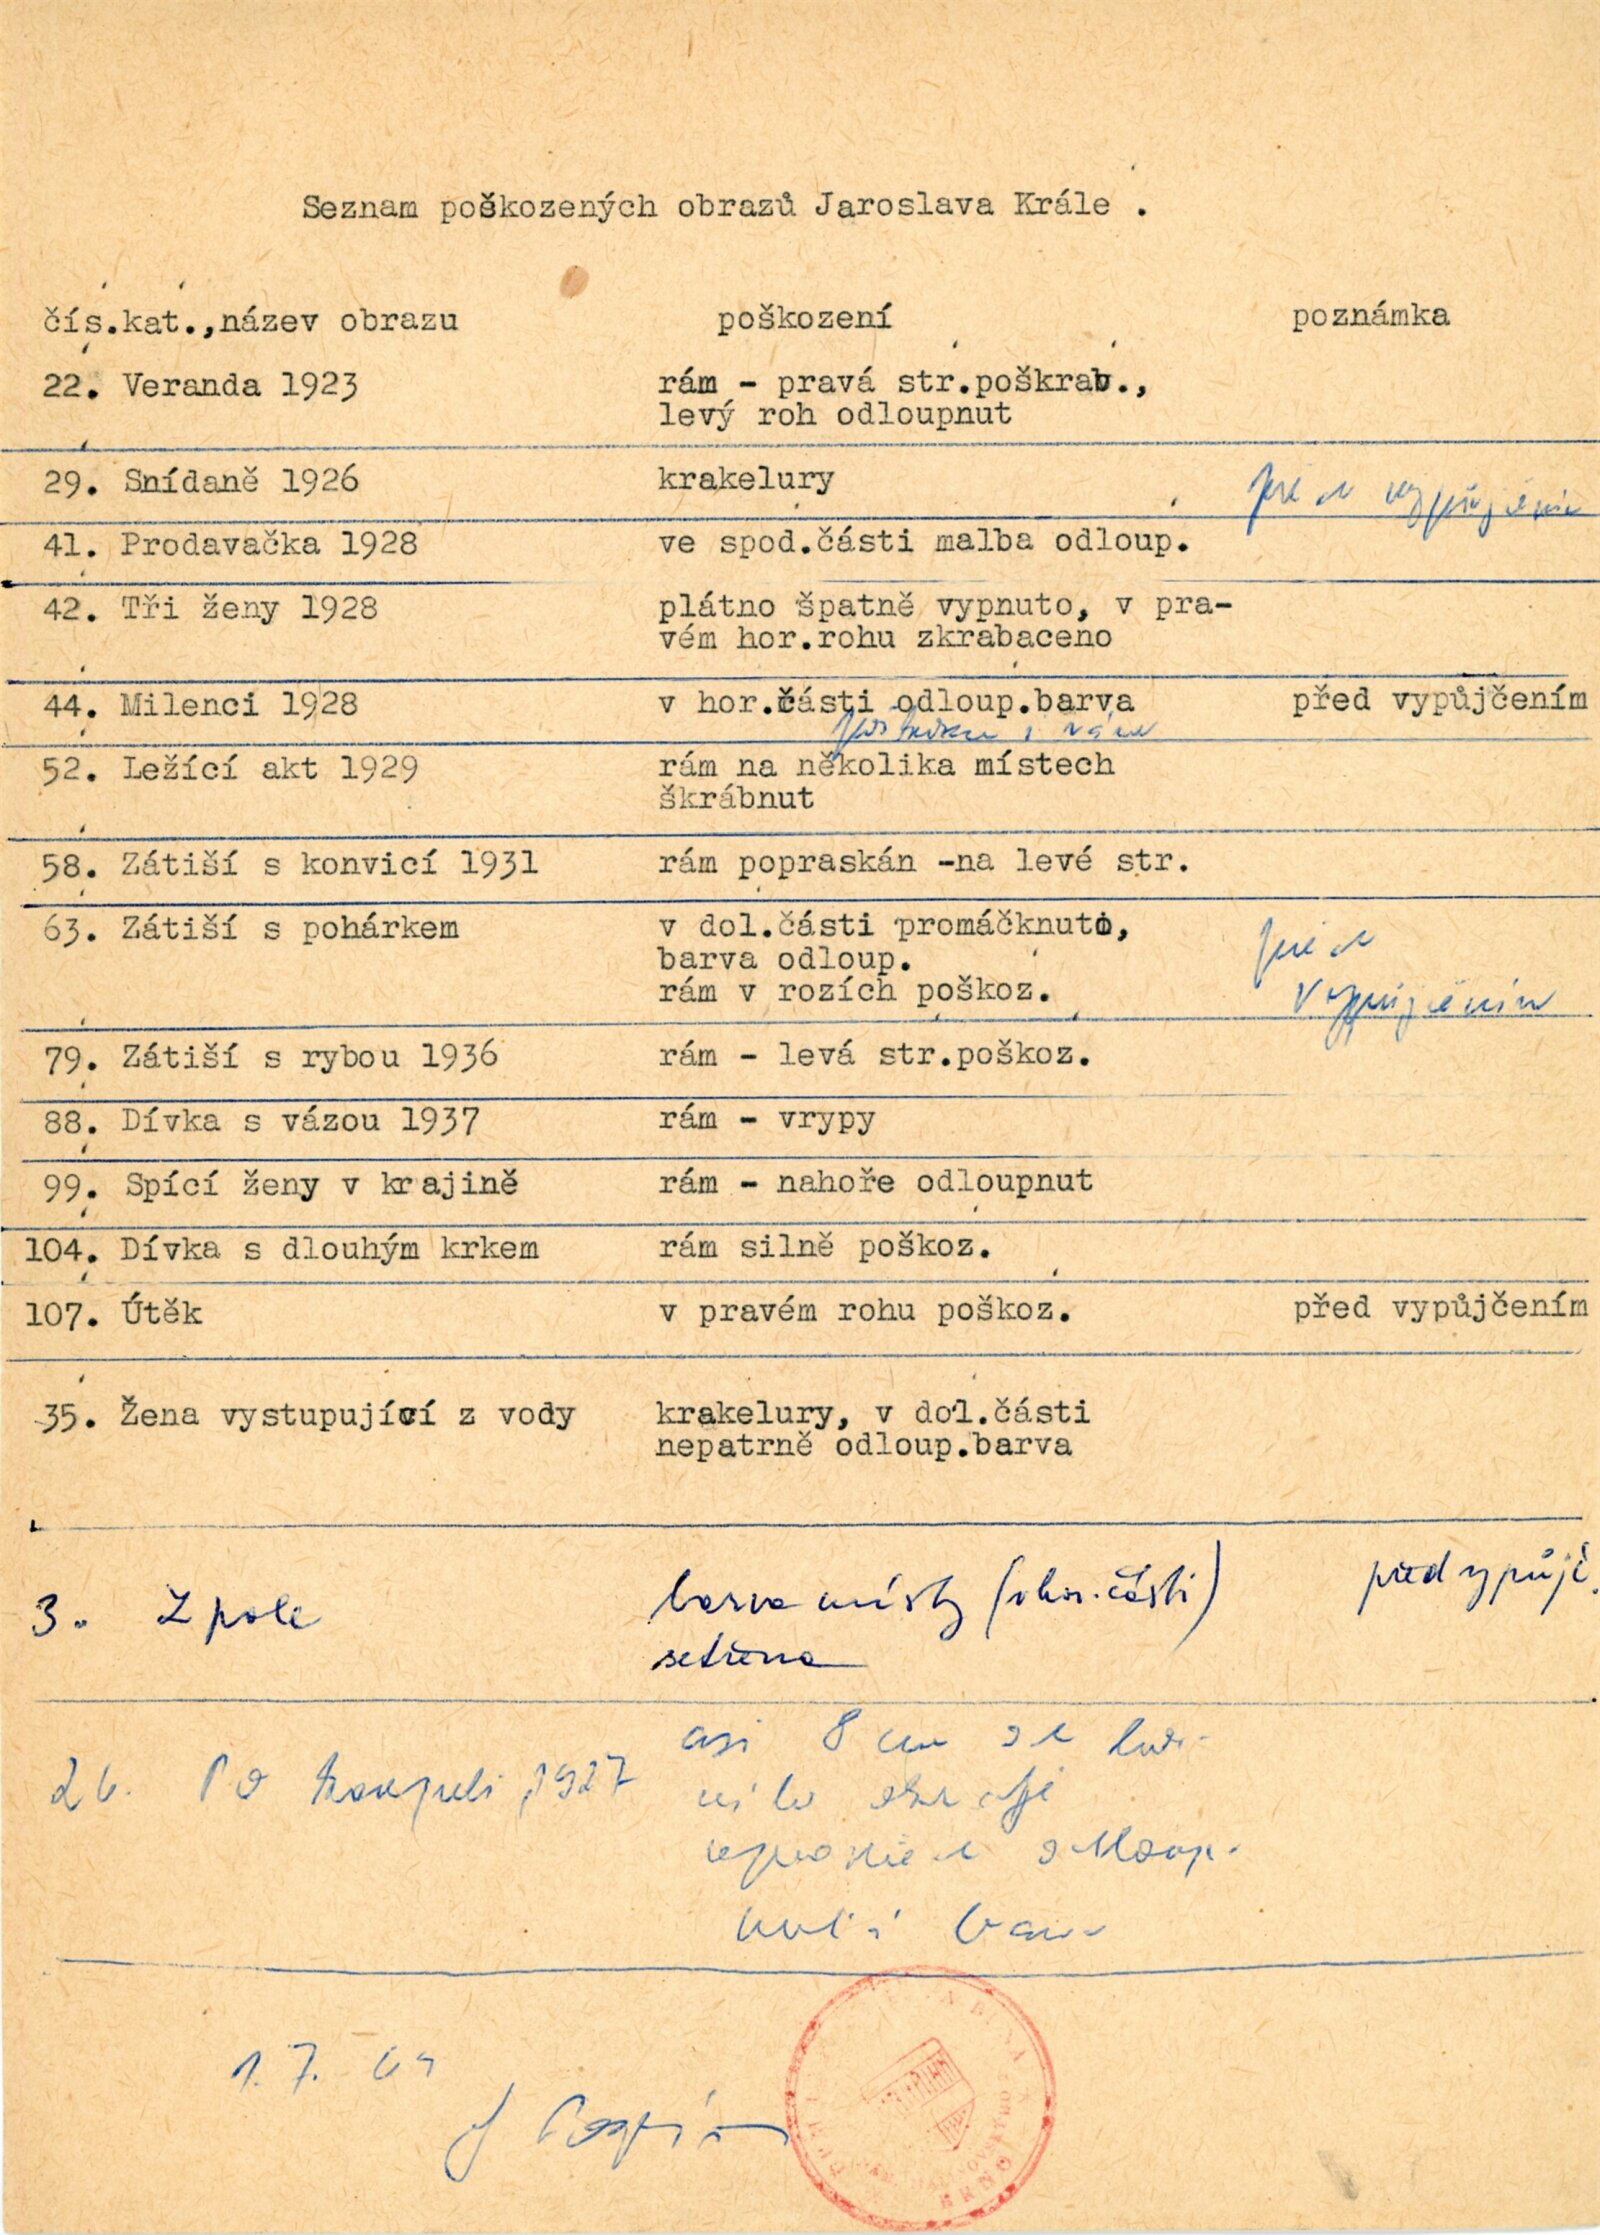 Seznam poškozených obrazů Jaroslava Krále .
čís.kat.,název obrazu poškození poznámka
22. Veranda 1923 rám - pravá str.poškrab.,
levý roh odloupnut
29. Snídaně 1926 krakelury
41. Prodavačka 1928 ve spod.části malba odloup.
42. Tři ženy 1928 plátno špatně vypnuto, v pra-
vém hor.rohu zkrabaceno
44. Milenci 1928 v hor.části odloup.barva před vypůjčením
52. Ležící akt 1929 rám na několika místech
škrábnut
58. Zátiší s konvicí 1931 rám popraskán -na levé str.
63. Zátiší s pohárkem v dol.části promáčknuto,
barva odloup.
rám v rozích poškoz.
vypůjčením
79. Zátiší s rybou 1936 rám - levá str.poškoz.
88. Dívka s vázou 1937 rám - vrypy
99. Spící ženy v krajině rám - nahoře odloupnut
104. Dívka s dlouhým krkem rám silně poškoz.
107. Útěk v pravém rohu poškoz. před vypůjčením
35. Žena vystupující z vody krakelury, v dol.části
nepatrně odloup.barva
3. Z pole barva místy (v hor. části) před vypůjč.
setřena
26. Po koupeli, 1927 asi 8 cm od hor-
ního okraje
uprostřed odloup-
nutá barva
1. 7.
BRNO